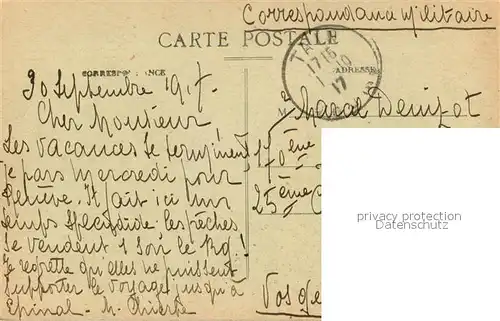 Correspondance Militaire
CARTE POSTALE
CORRESPONDANCE
ADRESSE
1715
1-10
17
30 Septembre 1917.
Cher Monsieur
Les vacances se terminent
je pars Mercredi pour
. Il fait ici un
temps splendide. les pêches
se vendent 1 sou le Kg!
Je regrette qu'elles ne puissent
supporter le voyage jusqu'à
Epinal - M.
M
170ème
25ème C
Vosges
privacy protection
Datenschutz